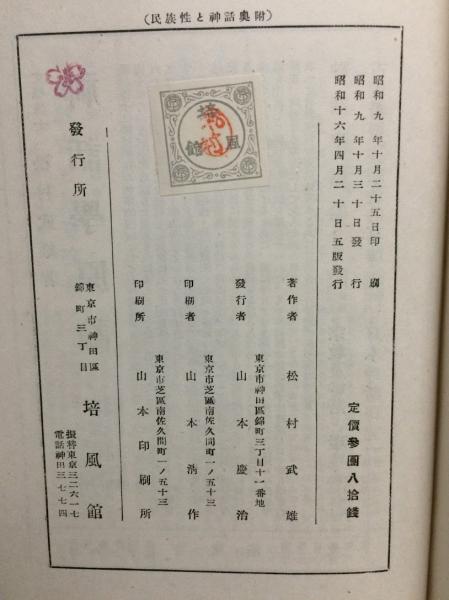 (附奥話神と性族民)
昭和九年十月二十五日印刷
昭和九年十月三十日發行
昭和十六年四月二十日五版發行
定價參圓八拾錢
著作者 松村武雄
東京市神田區錦町三丁目十一番地
發行者 山本慶治
東京市芝區南佐久間町一ノ五十三
印刷者 山本 作
東京市芝區南佐久間町一ノ五十三
印刷所 山本印刷所
發行所
東京市神田區
錦町三丁目
培風館
振替東京三二六一七
電話神田三七七四
培風館